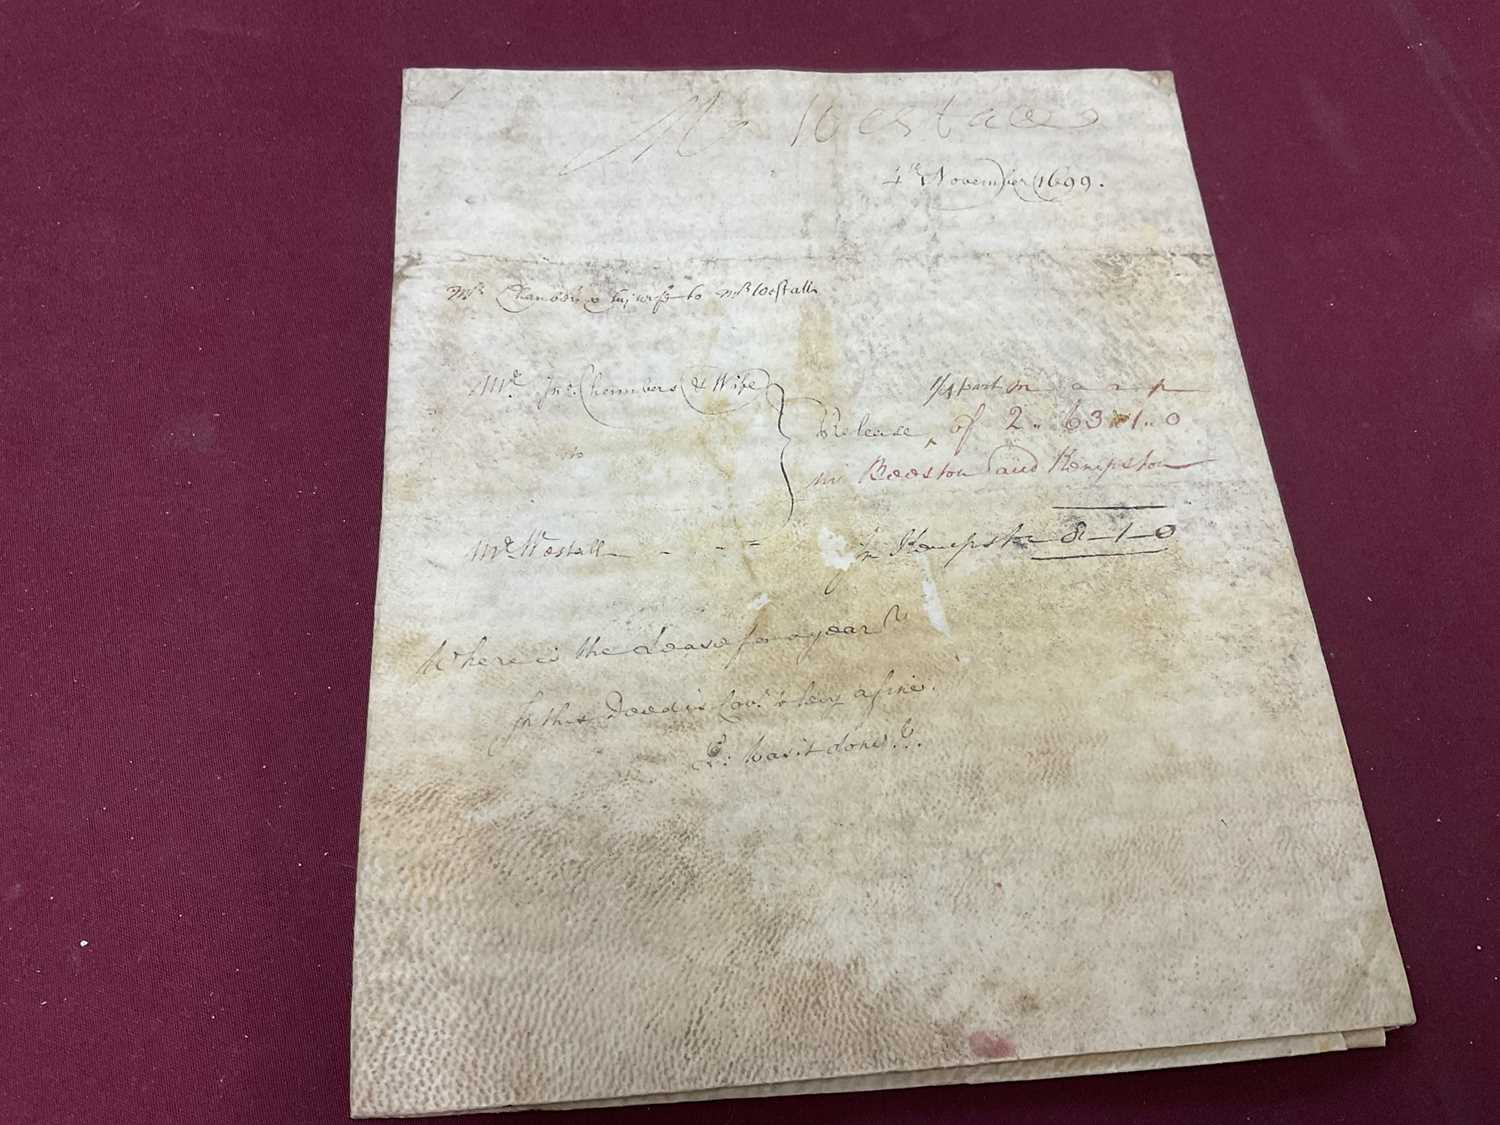 Mr Westall
4th November 1699.
Mr Chambers & his wife to Mr Westall
Mr. Jno. Chambers & Wife
to
Mr. Westall
1/4 part in a r p
Release of 2 .. 63 .. 1 .. 0
in Beeston and Kempston
In Kempston 8 - 1 - 0
Where is the Lease for a year?
In this Deed is Cov.t to levy a fine.
Q: was it done?